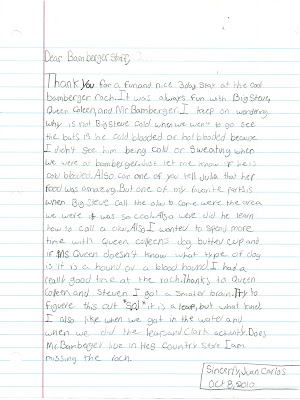 Dear Bamberger Staff,
Thank you for a fun and nice 3 day stay at the cool
bamberger rach. It was always fun with Big Steve,
Queen Coleen, and Mr. Bamberger. I keep on wondering
why is not Big Steve cold when we went to go see
the bats is he cold blooded or hot blooded because
I didn't see him being cold or sweating when
we were at bamberger. Just let me know if he is
cold blooded. Also can one of you tell Julia that her
food was amazing. But one of my favorite parts is
when Big Steve call the owl to come were the area
we were it was so cool. Also were did he learn
how to call a owl. Also I wanted to spend more
time with Queen coleens dog buttercup and
if Ms Queen doesn't know what type of dog
is it is a hound or a blood hound. I had a
really good time at the rach. Thanks to Queen
Coleen and Steven I got a smarter brain. Try to
figuere this out "Sal" it is a leap, but what kind
I also like when we got in the water and
when we did the leap and Clark activity. Does
Mr. Bamberger live in Hes Country still I am
missing the rach.
Sincerly, Juan Carlos
Oct 8, 2010